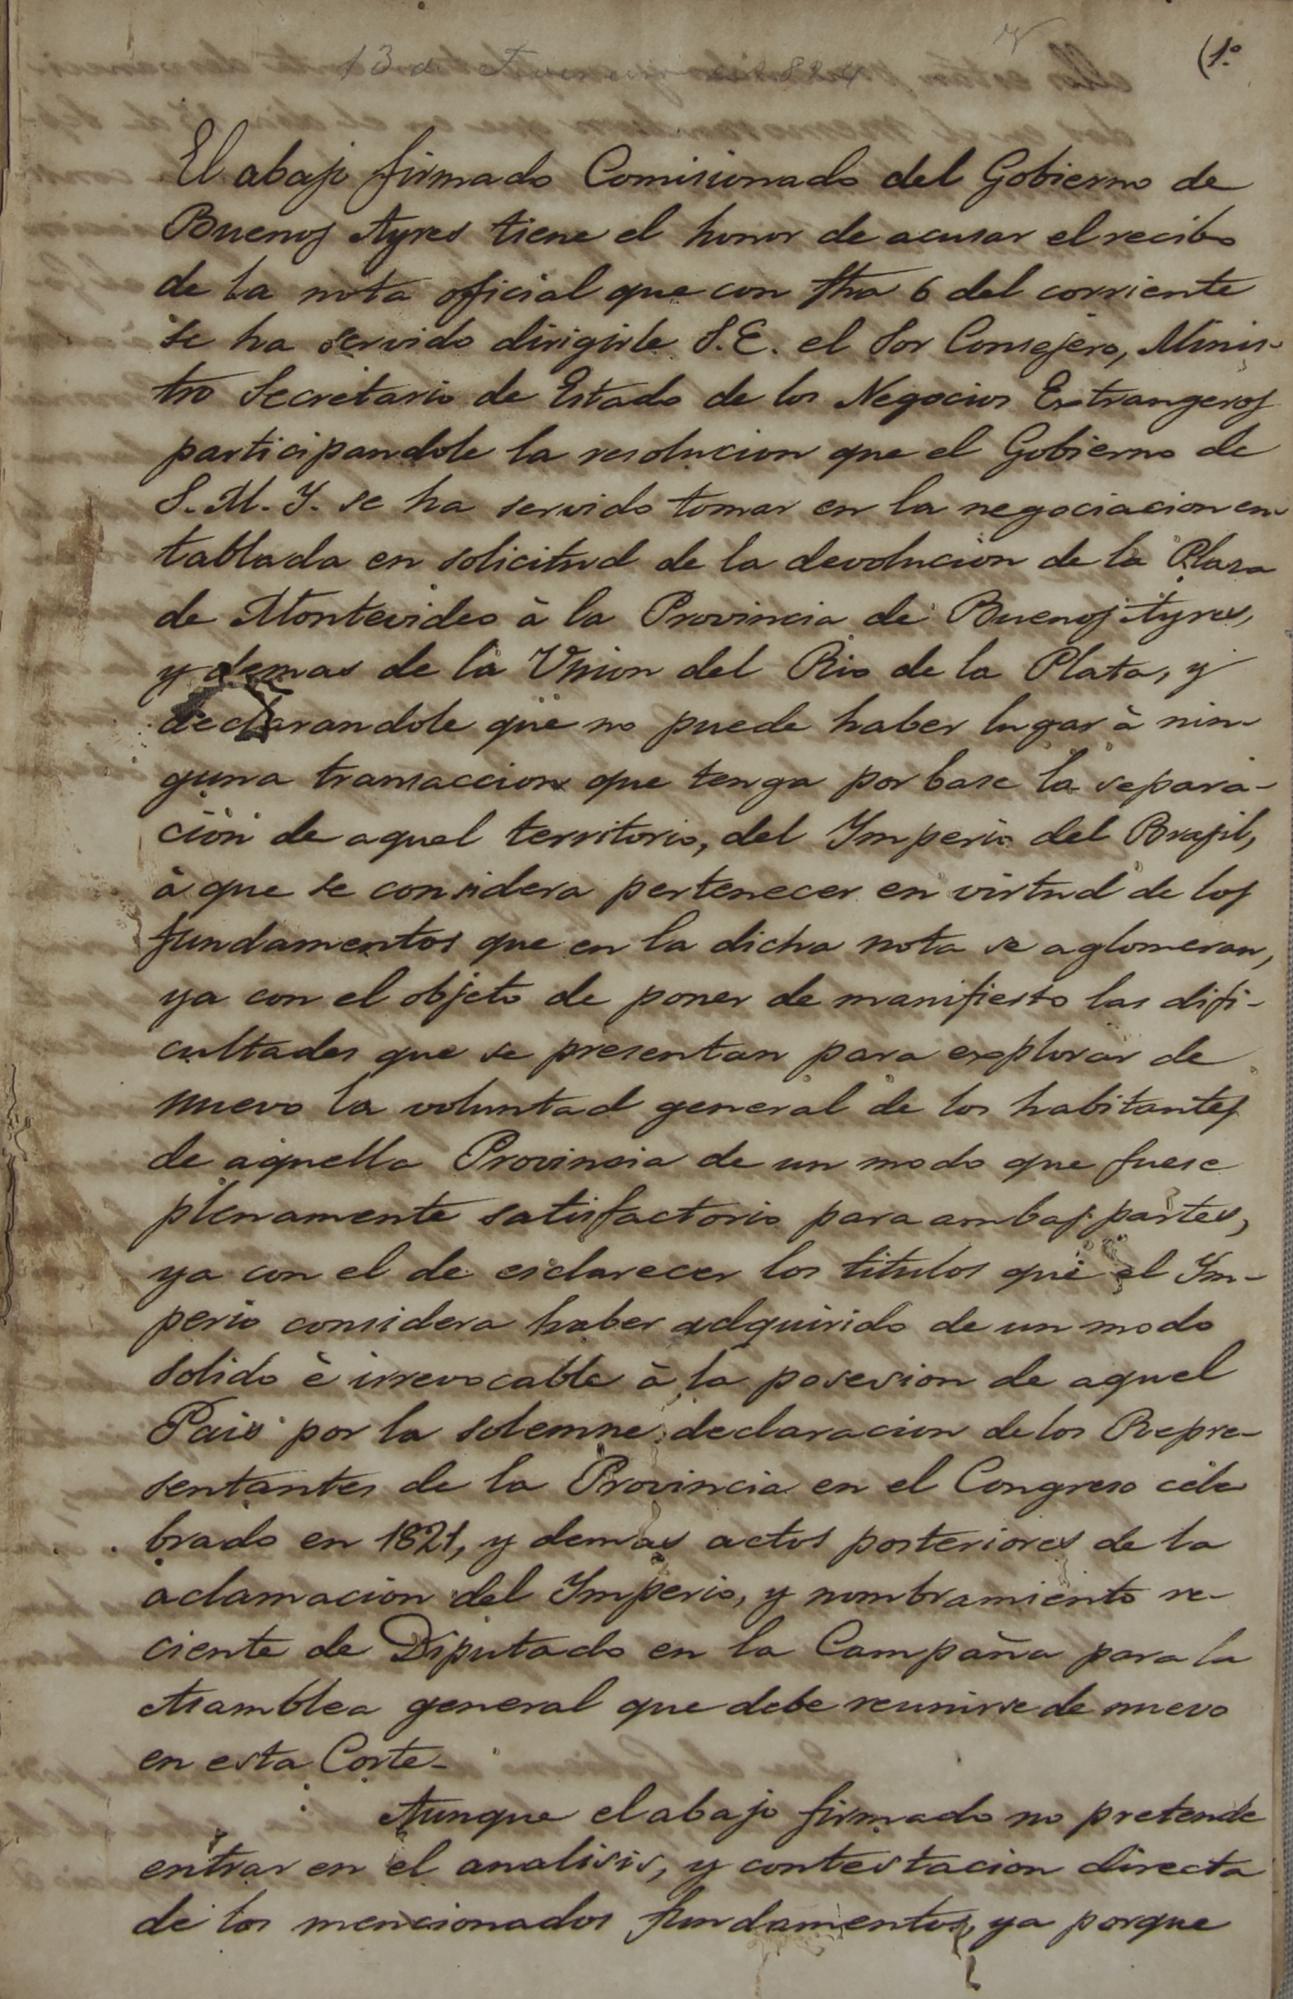 (1.º
13 de
El abajo firmado Comisionado del Gobierno de
Buenos Ayres tiene el honor de acusar el recibo
de la nota oficial que con fha 6 del corriente
se ha servido dirigirle S.E. el Sor Consejero, Minis-
tro Secretario de Estado de los Negocios Extrangeros
participandole la resolucion que el Gobierno de
S. M. Y. se ha servido tomar en la negociacion en
tablada en solicitud de la devolucion de la Plaza
de Montevideo à la Provincia de Buenos Ayres,
y demas de la Union del Rio de la Plata, y
declarandole que no puede haber lugar à nin-
guna transaccion que tenga por base la separa-
cion de aquel territorio, del Imperio del Brasil,
à que se considera pertenecer en virtud de los
fundamentos que en la dicha nota se aglomeran,
ya con el objeto de poner de manifiesto las difi-
cultades que se presentan para explorar de
nuevo la voluntad general de los habitantes
de aquella Provincia de un modo que fuese
plenamente satisfactorio para ambas partes,
ya con el de esclarecer los titulos que el Im-
perio considera haber adquirido de un modo
solido è irrevocable à la posesion de aquel
Pais por la solemne declaracion de los Repre-
sentantes de la Provincia en el Congreso cele
brado en 1821, y demas actos posteriores de la
aclamacion del Imperio, y nombramiento re-
ciente de Diputado en la Campaña para la
Asamblea general que debe reunirse de nuevo
en esta Corte-
Aunque el abajo firmado no pretende
entrar en el analisis, y contestacion directa
de los mencionados fundamentos, ya porque